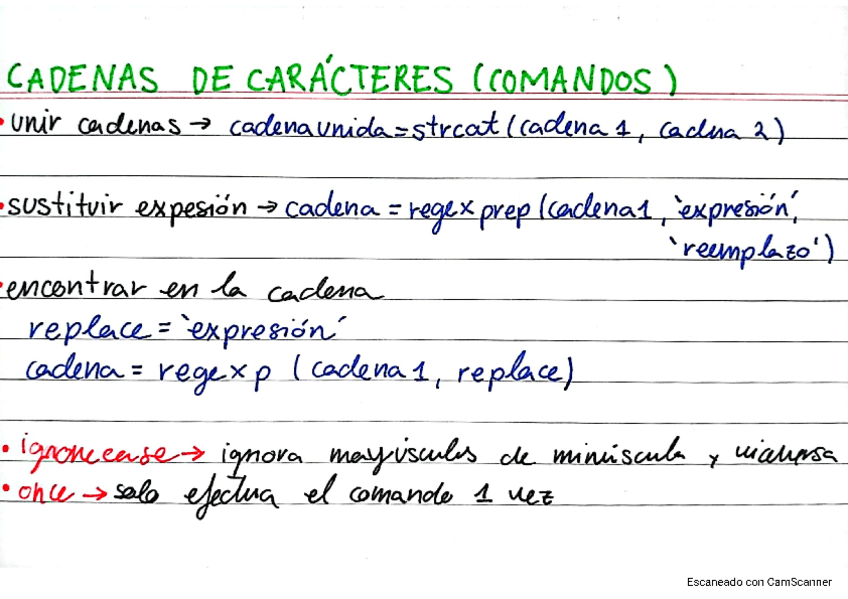 CADENAS DE CARÁCTERES (COMANDOS)
• unir cadenas → cadenaunida = strcat (cadena 1, cadna 2)
• sustituir expesión → cadena = regexprep (cadena1, `expresión´,
`reemplazo')
• encontrar en la cadena
replace = `expresión´
cadena = regexp (cadena 1, replace)
• ignorecase → ignora mayúsculas de minúscula y viceversa
• once → solo efectua el comando 1 vez
Escaneado con CamScanner